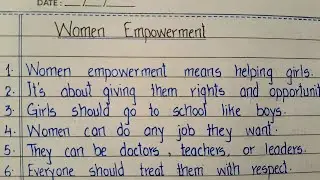 DATE: __/__/__
Women Empowerment
1. Women empowerment means helping girls.
2. It's about giving them rights and opportunit
3. Girls should go to school like boys.
4. Women can do any job they want.
5. They can be doctors, teachers, or leaders.
6. Everyone should treat them with respect.